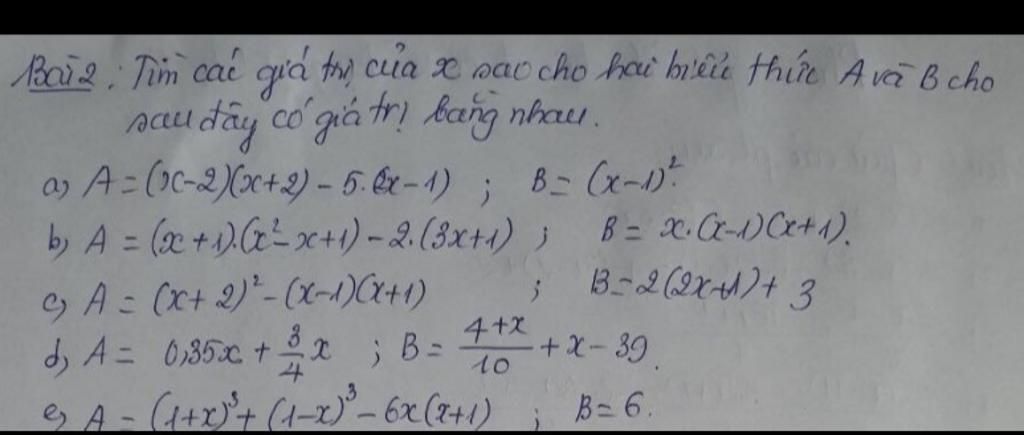 Bài 2: Tìm các giá trị của x sao cho hai biểu thức A và B cho
sau đây có giá trị bằng nhau.
a) A = (x-2)(x+2) - 5.(x-1) ; B = (x-1)².
b) A = (x+1).(x²-x+1) - 2.(3x+1) ; B = x.(x-1)(x+1).
c) A = (x+2)² - (x-1)(x+1) ; B = 2(2x+1) + 3
d) A = 0,35x + 3/4 x ; B = (4+x)/10 + x - 39.
e) A = (1+x)³ + (1-x)³ - 6x(x+1) ; B = 6.